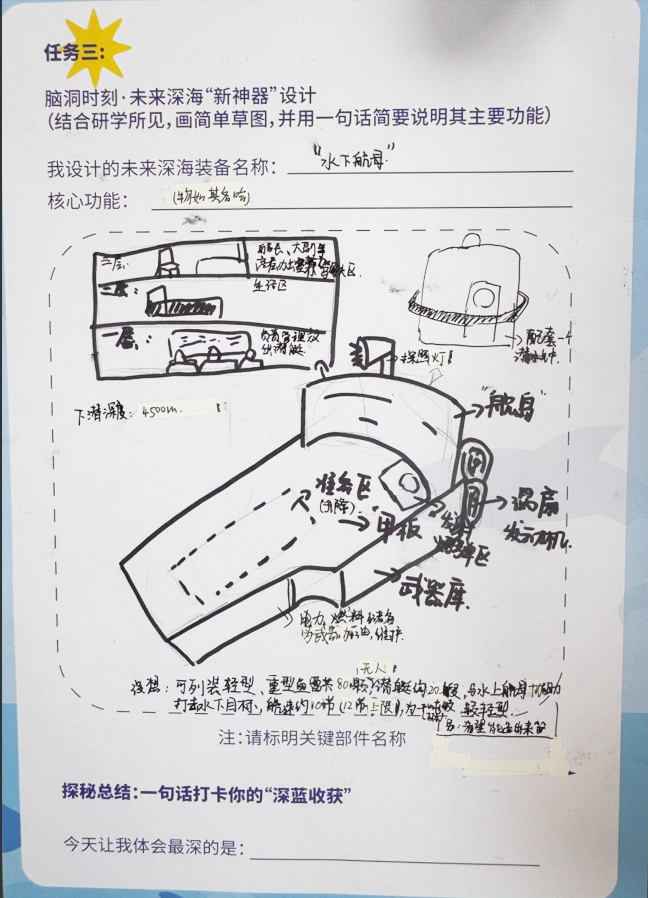 任务三：
脑洞时刻·未来深海“新神器”设计
(结合研学所见，画简单草图，并用一句话简要说明其主要功能)
我设计的未来深海装备名称： “水下航母”
核心功能： (物如其名哈)
三层：
舰长、大副等
二层：
生活区
一层：
负责管理
潜艇
配套一个
潜水钟
探照灯
下潜深度：4500m
“舰岛”
准备区
(升降)
“甲板”
燃料
区
涡扇
发动机
武器库
电力、燃料储备
为武器加油、维护
无人
设想：可列装轻型、重型鱼雷共80枚，潜艇约20艘，与水上航母
打击水下目标，航速约10节(12节上限)，为
轻型
另：希望
注：请标明关键部件名称
探秘总结：一句话打卡你的“深蓝收获”
今天让我体会最深的是：